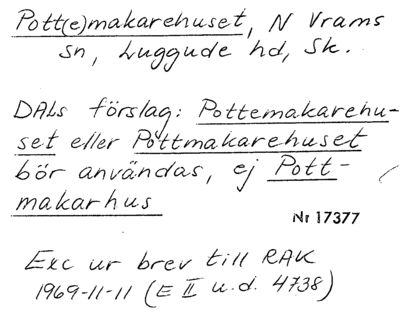 Pott(e)makarehuset, N Vrams
sn, Luggude hd, Sk.
DALs förslag: Pottemakarehu-
set eller Pottmakarehuset
bör användas, ej Pott-
makarhus
Nr 17377
Exc ur brev till RAK
1969-11-11 (E II u.d. 4738)